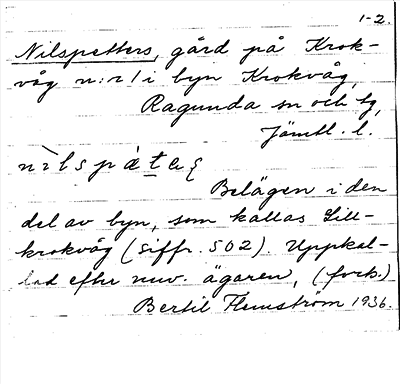 1-2.
Nilspetters, gård på Krok-
våg n:r 1 i byn Krokvåg,
Ragunda sn och tg,
Jämtl. l.
Belägen i den
del av byn, som kallas Lill-
krokvåg (siffr. 502). Uppkal-
lad efter nuv. ägaren, (forts.)
Bertil Flemström 1936.